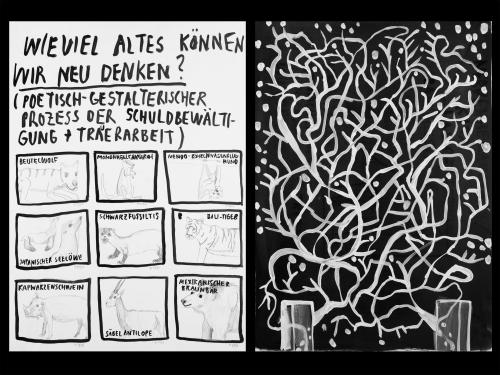 WIEVIEL ALTES KÖNNEN
WIR NEU DENKEN?
(POETISCH-GESTALTERISCHER
PROZESS DER SCHULDBEWÄLTI-
GUNG + TRÄERARBEIT)
BEUTELWOLF
HUND
JAPANISCHER SEELÖWE
SCHWARZFUSSILTIS
B BALI-TIGER
KAPWARZENSCHWEIN
SÄBEL ANTILOPE
MEXIKANISCHER
BRAUNBÄR